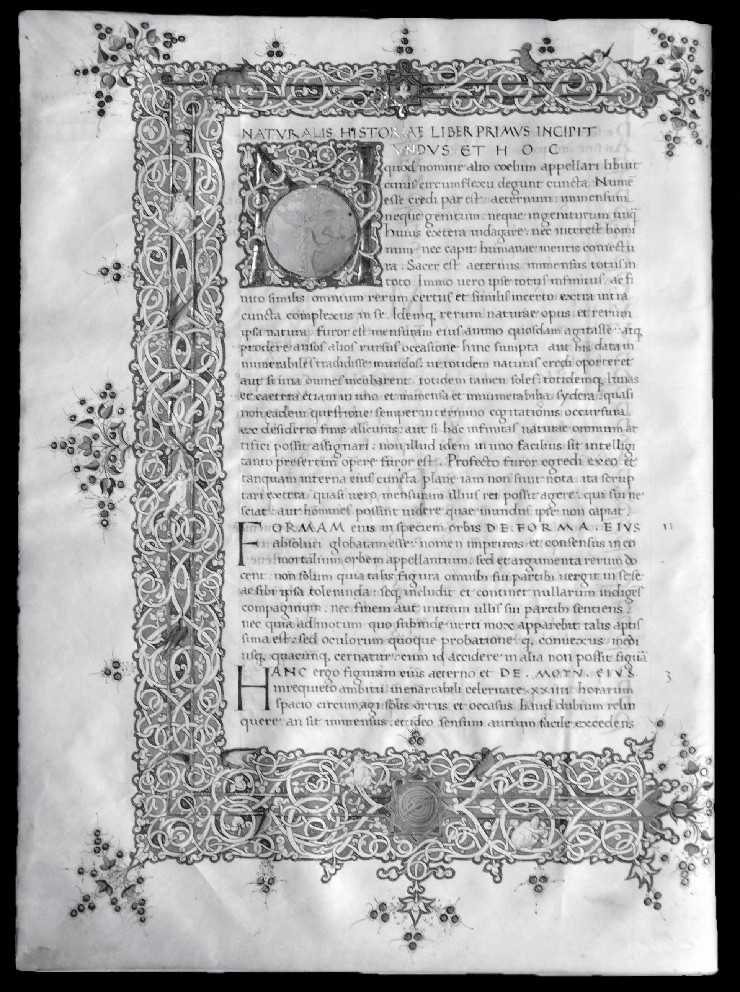 NATVRALIS HISTORIAE LIBER PRIMVS INCIPIT
VNDVS ET HOC
quod nomine alio coelum appellari libuit
cuius circumflexu degunt cuncta. Nume
esse credi par est: aeternum: immensum
neque genitum: neque inqeniturum unq
huius extera indagare: nec interest homi
num: nec capit humanae mentis coniectu
ra. Sacer est aeternus immensus totus in
toto. Immo uero ipse totus infinitus: ac fi
nito similis omnium rerum certus et similis incerto: extra intra
cuncta complexus in se. Idemq, rerum naturae opus: et rerum
ipsa natura: furor est mensuram eius animo quosdam agitasse: atq,
prodere ausos: alios rursus occasione hinc sumpta. aut his data in
numerabiles tradidisse mundos: ut totidem naturas credi oporteret
aut si una omnes incobarent: totidem tamen soles: totidemq, lunas
et caetera etiam in uno et immensa et innumerabilia sydera: quasi
non eadem questione semper in termino cogitationis occursura
ex desiderio finis alicuius: aut si haec infinitas naturae omnium ar
tifici possit assignari: non illud idem in uno facilius sit intelligi
tanto presertim opere furor est. Profecto furor egredi ex eo: et
tanquam interna eius cuncta plane iam non sint nota. ita scrup
tari extera: quasi uero mensuram illius rei possit agere: qui sui ne
sciat: aut homines possint uidere quae mundus ipse non capiat.
FORMAM eius in speciem orbis DE.FORMA.EIVS 11
absoluti globatam esse: nomen imprimis: et consensus in eo
mortalium orbem appellantium: sed et argumenta rerum do
cent: non solum quia talis figura omnibus sui partibus uergit in sese
ac sibi ipsa toleranda: seq, includit et continet nullarum indiges
compaginum: nec finem aut initium ullis sui partibus sentiens
nec quia ad motum quo subinde uerti mox apparebit talis aptis
sima est: sed oculorum quoque probatione: q, conuexus medi
usq, quacunq, cernatur: cum id accidere in alia non possit figura
HANC ergo figuram eius aeterno et DE.MOTV.EIVS. 3
inrequieto ambitu inenarrabili celeritate xxiiii horarum
spacio circumagi solis ortus et occasus haud dubium relin
quere: an sit immensus: et ideo sensum aurium facile excedens